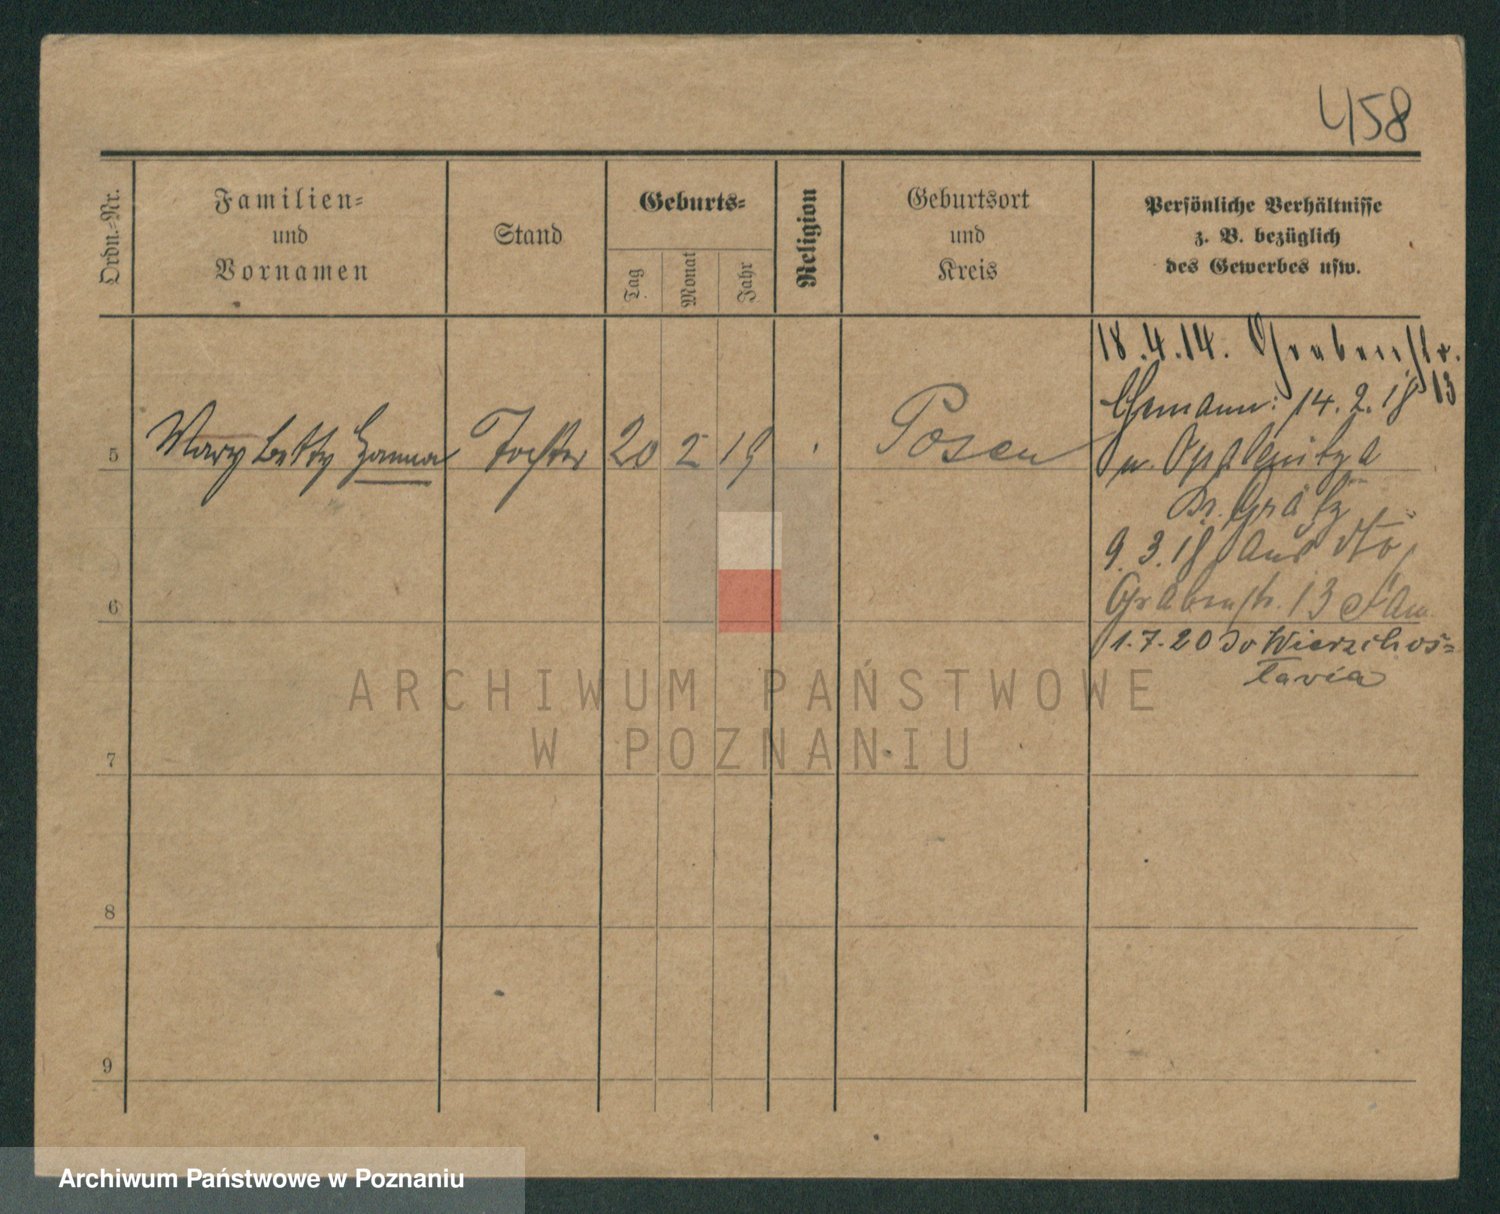 458
Ordn.-Nr.
Familien-
und
Vornamen
Stand
Geburts-
Tag
Monat
Jahr
Religion
Geburtsort
und
Kreis
Persönliche Verhältnisse
z. B. bezüglich
des Gewerbes usw.
18.4.14. Grabenstr.
13
Ehemann: 14.2.18
5 Mary Betty Hanna Tochter 20 2 19 Posen
n. Opalenitza
Kr. Grätz
9.3.18 aus
6 Grabenstr. 13
1.7.20
7
8
9
ARCHIWUM PAŃSTWOWE
W POZNANIU
Archiwum Państwowe w Poznaniu